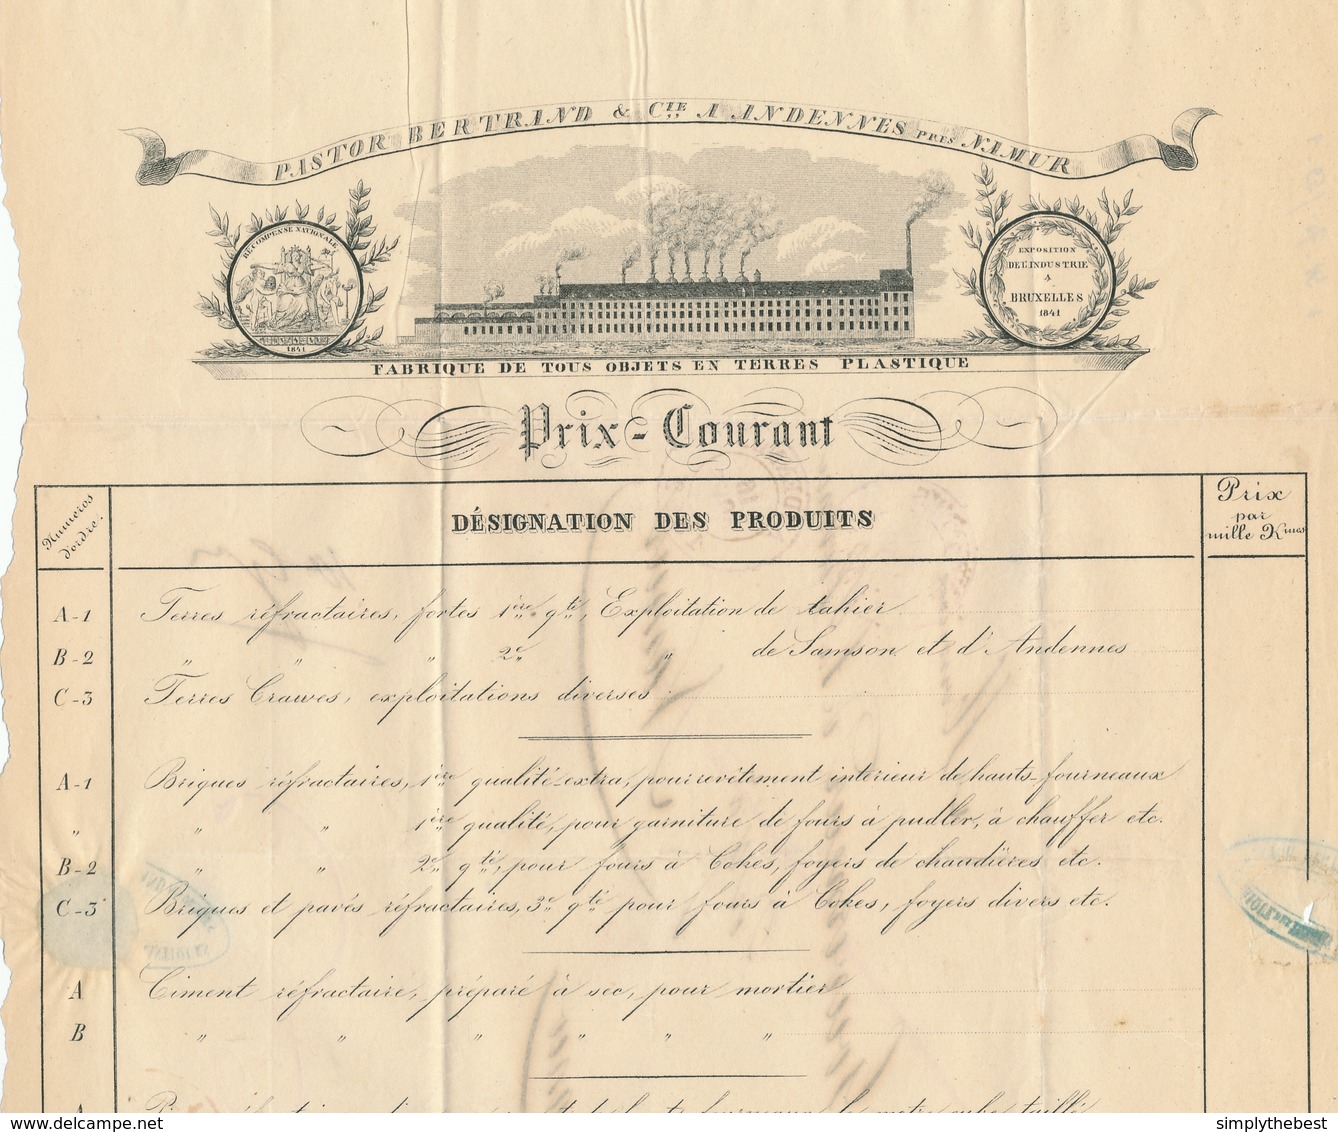 PASTOR BERTRAND & CIE A ANDENNES PRES NAMUR
RÉCOMPENSE NATIONALE
1841
EXPOSITION
DE L'INDUSTRIE
A
BRUXELLES
1841
FABRIQUE DE TOUS OBJETS EN TERRES PLASTIQUE
Prix-Courant
Numeros d'ordre.
DÉSIGNATION DES PRODUITS
Prix par mille Kmes
A-1 Terres réfractaires, fortes 1ère qté, Exploitation de tahier
B-2 " " " 2e " de Samson et d'Andennes
C-3 Terres Crawes, exploitations diverses
A-1 Briques réfractaires, 1ère qualité extra, pour revêtement intérieur de hauts-fourneaux
" " " 1ère qualité, pour garniture de fours à pudler, à chauffer etc.
B-2 " " 2e qté, pour fours à Cokes, foyers de chaudières etc.
C-3 Briques et pavés réfractaires, 3e qté pour fours à Cokes, foyers divers etc.
A Ciment réfractaire, préparé à sec, pour mortier
B " " " " " "
www.delcampe.net
simplythebest